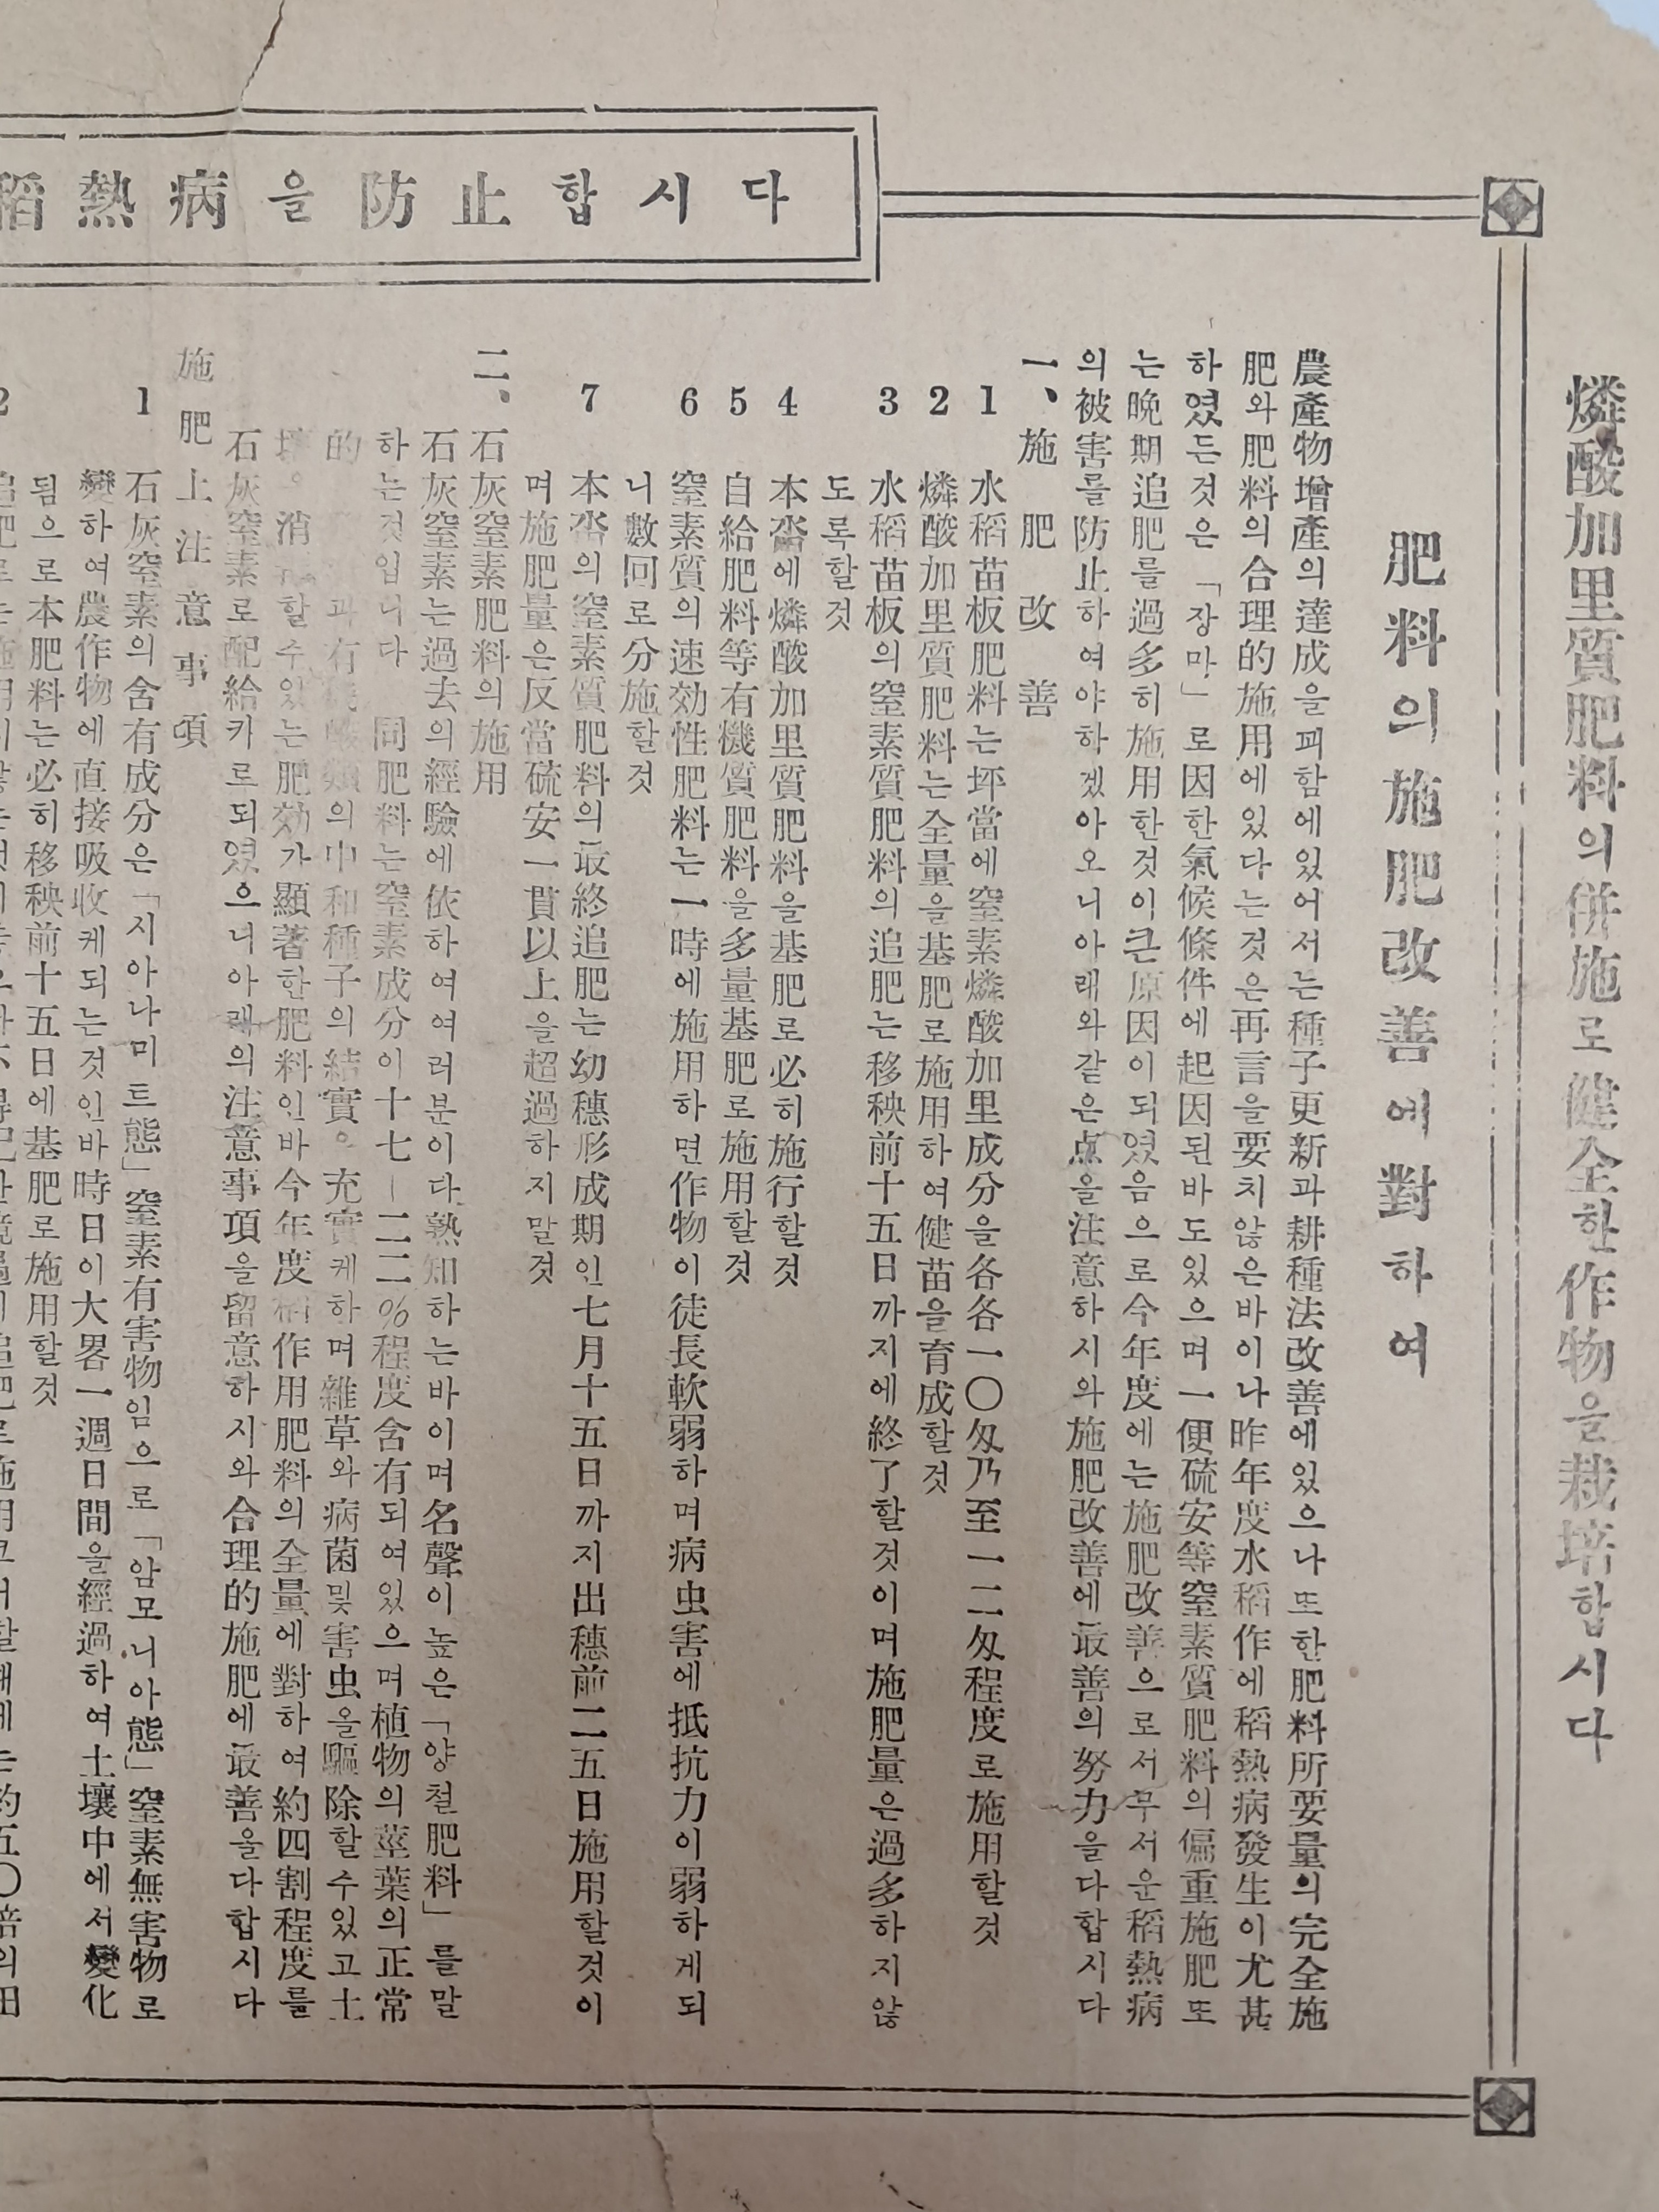 燐酸加里質肥料의併施로健全한作物을栽培합시다
稻熱病을防止합시다
肥料의施肥改善에對하여
農產物增產의達成을꾀함에있어서는種子更新과耕種法改善에있으나또한肥料所要量의完全施
肥와肥料의合理的施用에있다는것은再言을要치않은바이나昨年度水稻作에稻熱病發生이尤甚
하였든것은「장마」로因한氣候條件에起因된바도있으며一便硫安等窒素質肥料의偏重施肥또
는晩期追肥를過多히施用한것이큰原因이되였음으로今年度에는施肥改善으로서무서운稻熱病
의被害를防止하여야하겠아오니아래와같은点을注意하시와施肥改善에最善의努力을다합시다
一、施肥改善
1 水稻苗板肥料는坪當에窒素燐酸加里成分을各各一〇匁乃至一二匁程度로施用할것
2 燐酸加里質肥料는全量을基肥로施用하여健苗을育成할것
3 水稻苗板의窒素質肥料의追肥는移秧前十五日까지에終了할것이며施肥量은過多하지않
도록할것
4 本畓에燐酸加里質肥料을基肥로必히施行할것
5 自給肥料等有機質肥料을多量基肥로施用할것
6 窒素質의速効性肥料는一時에施用하면作物이徒長軟弱하며病虫害에抵抗力이弱하게되
니數回로分施할것
7 本畓의窒素質肥料의最終追肥는幼穗形成期인七月十五日까지出穗前二五日施用할것이
며施肥量은反當硫安一貫以上을超過하지말것
二、石灰窒素肥料의施用
石灰窒素는過去의經驗에依하여여러분이다熟知하는바이며名聲이높은「양철肥料」를말
하는것입니다 同肥料는窒素成分이十七—二二%程度含有되여있으며植物의莖葉의正常
的 과有機 類의中和種子의結實 充實케하며雜草와病菌및害虫을驅除할수있고土
壤 消 할수있는肥効가顯著한肥料인바今年度稻作用肥料의全量에對하여約四割程度를
石灰窒素로配給카로되였으니아래의注意事項을留意하시와合理的施肥에最善을다합시다
施肥上注意事項
1 石灰窒素의含有成分은「시아나미트態」窒素有害物임으로「암모니아態」窒素無害物로
變하여農作物에直接吸收케되는것인바時日이大畧一週日間을經過하여土壤中에서變化
됨으로本肥料는必히移秧前十五日에基肥로施用할것
2